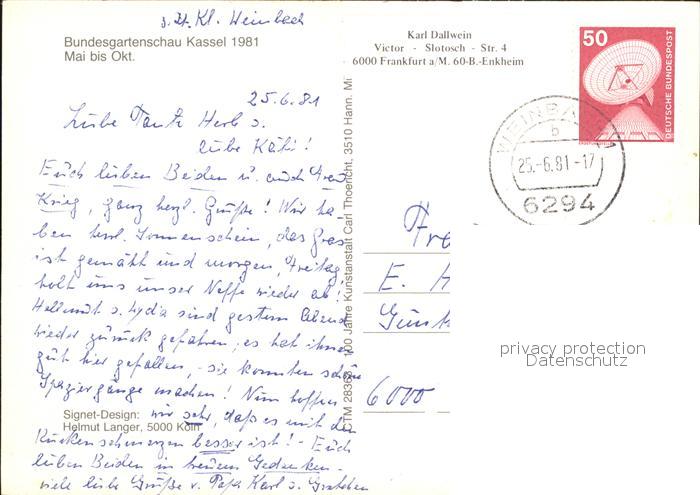 z. Zt. Kl. Weinbach
Bundesgartenschau Kassel 1981
Mai bis Okt.
Karl Dallwein
Victor - Slotosch - Str. 4
6000 Frankfurt a/M. 60-B.-Enkheim
50
DEUTSCHE BUNDESPOST
WEINBACH 1
b
25.-6.81-17
6294
25.6.81
Liebe Tante u.
Liebe Käthi!
Euch lieben Beiden u. auch Frau
Krieg, ganz herzl. Grüße! Wir ha
ben herrl. Sonnenschein, das Gras
ist gemäht und morgen, Freitag
holt uns unser Neffe wieder ab!
Hellmut u. Lydia sind gestern Abend
wieder zurück gefahren, es hat ihnen
gut hier gefallen, sie konnten schöne
Spaziergänge machen! Nun hoffen
wir sehr, daß es mit den
Rückenschmerzen besser ist! - Euch
lieben Beiden in treuem Gedenken
viele liebe Grüße v. Papa Karl u. Gretchen
Signet-Design:
Helmut Langer, 5000 Köln
CTM 2836 100 Jahre Kunstanstalt Carl Thoericht, 3510 Hann. Mü
Fr
E. H
Günt
6000
privacy protection
Datenschutz